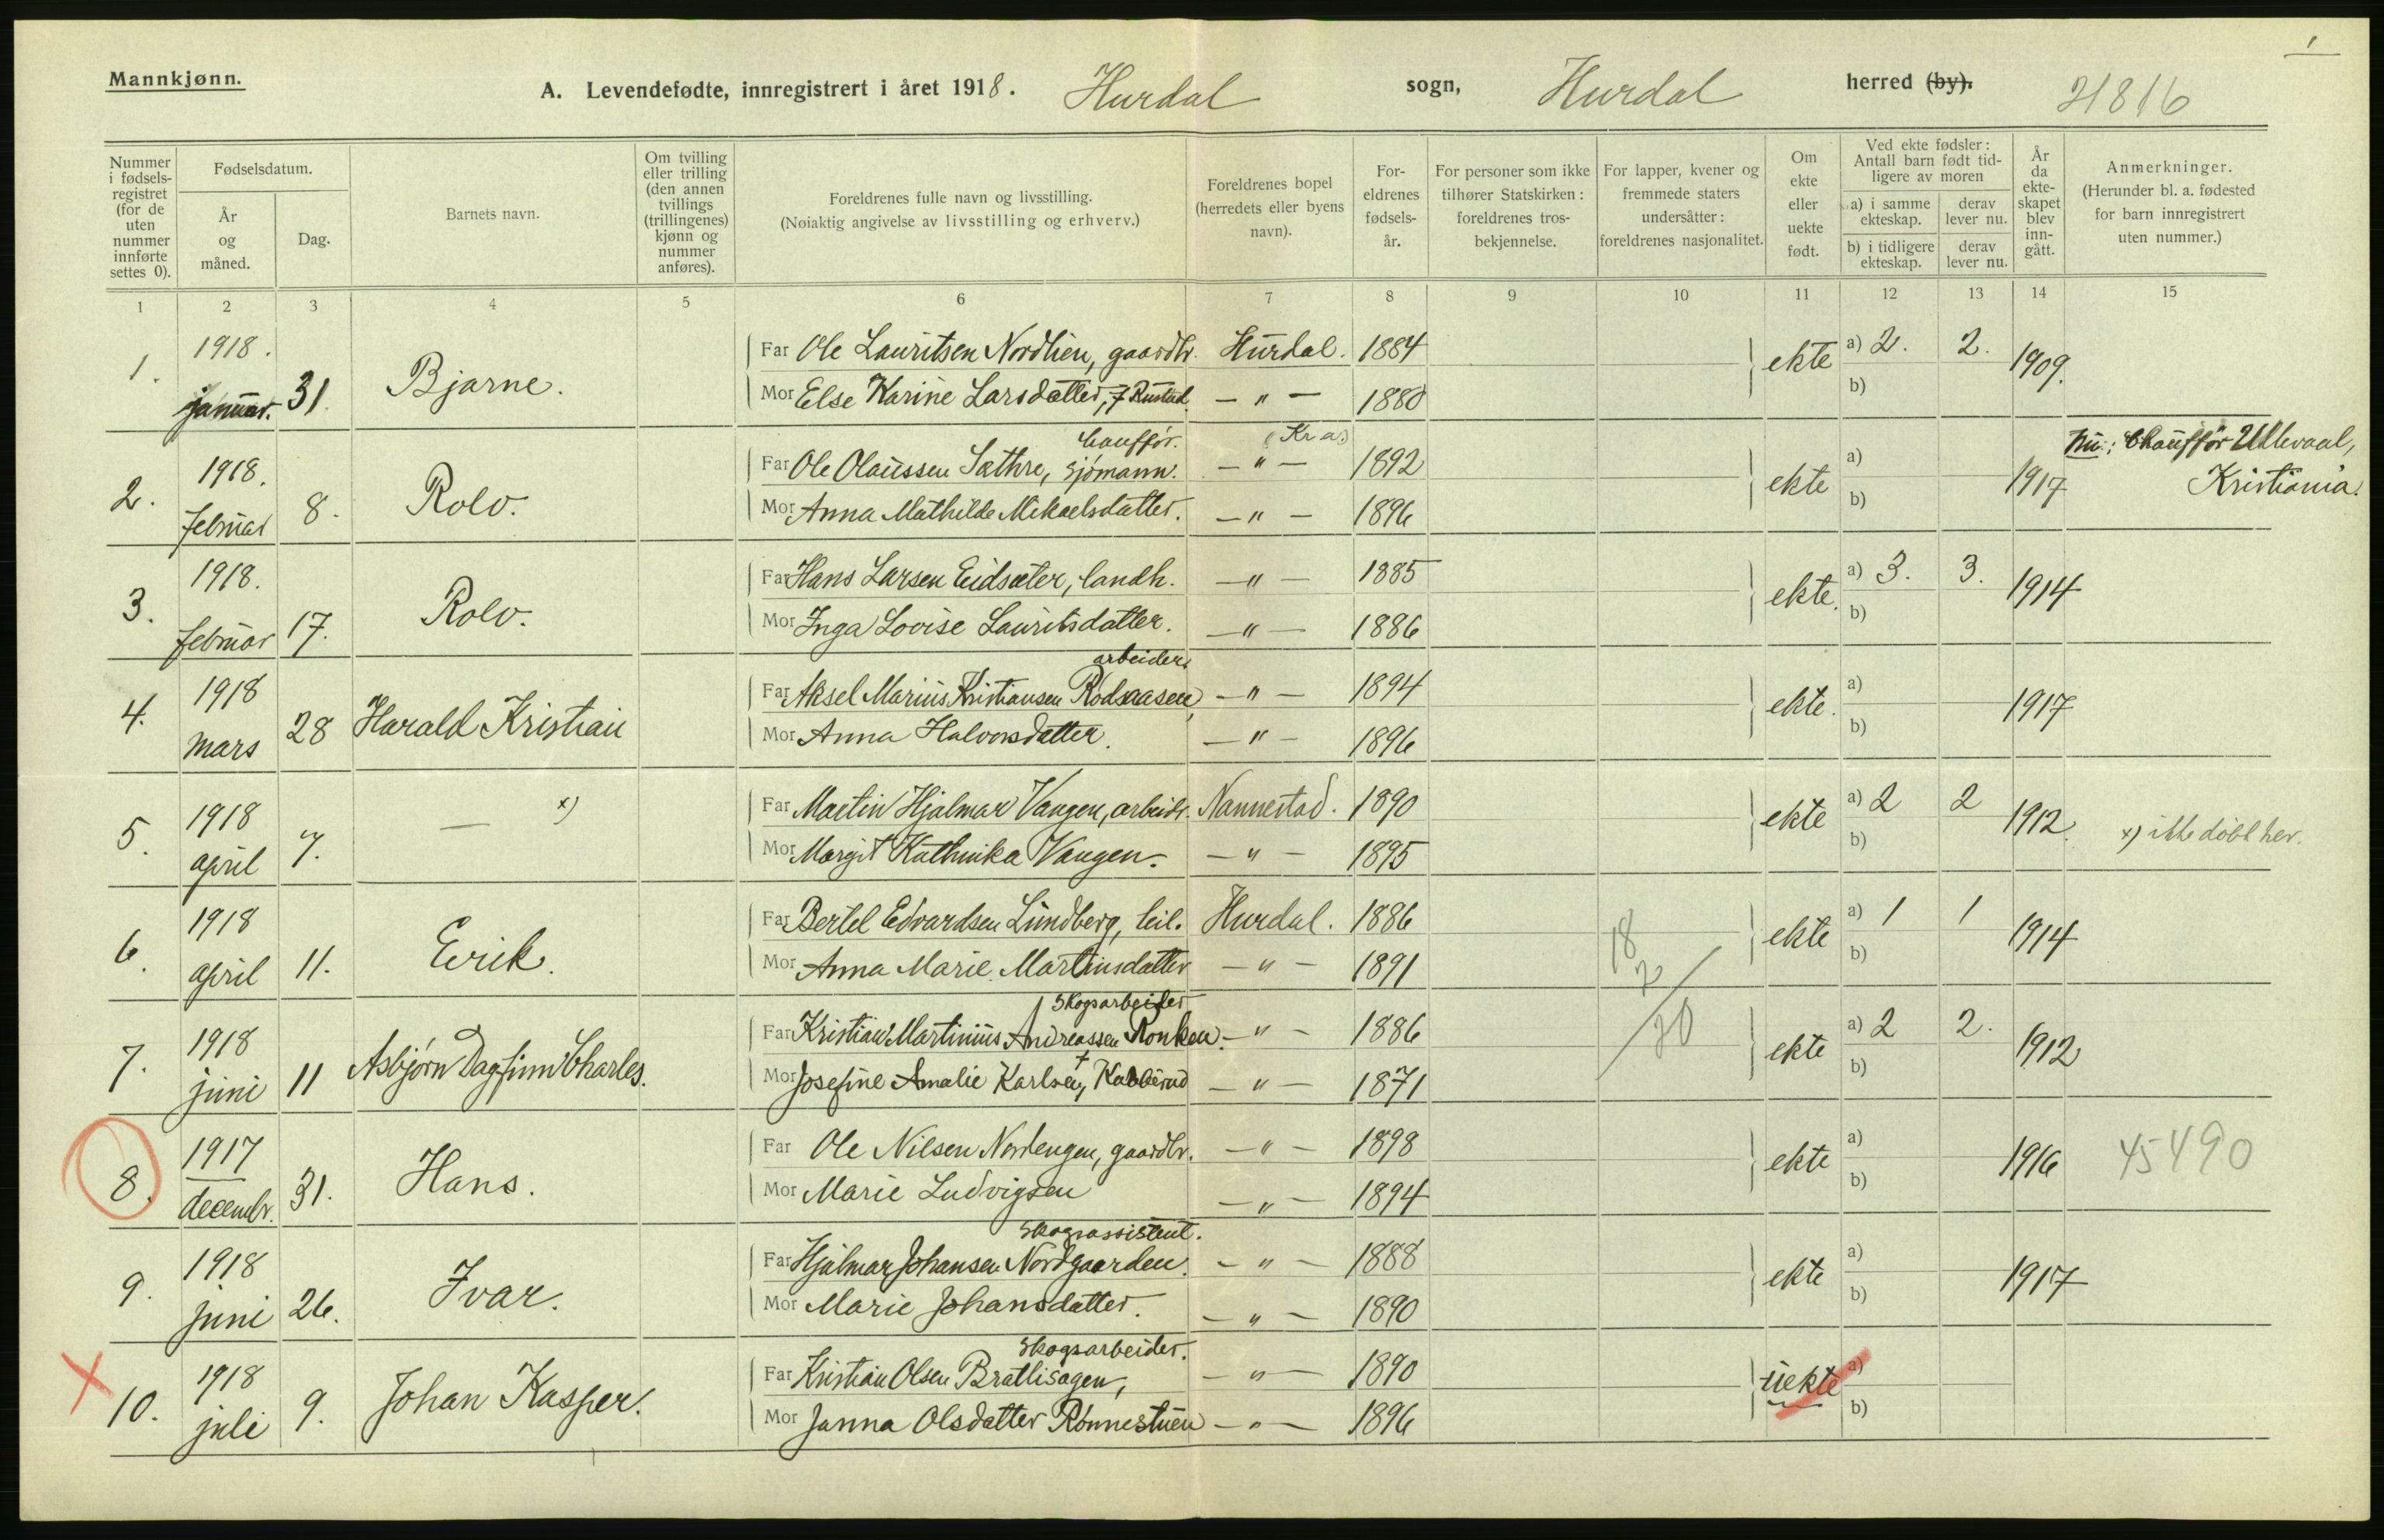 1
Mannkjønn.
A. Levendefødte, innregistrert i året 1918. Hurdal sogn, Hurdal herred (by). 21816
Nummer i fødselsregistret (for de uten nummer innførte settes 0).
Fødselsdatum.
År og måned.
Dag.
Barnets navn.
Om tvilling eller trilling (den annen tvillings (trillingenes) kjønn og nummer anføres).
Foreldrenes fulle navn og livsstilling.
(Nøiaktig angivelse av livsstilling og erhverv.)
Foreldrenes bopel (herredets eller byens navn).
Foreldrenes fødselsår.
For personer som ikke tilhører Statskirken: foreldrenes trosbekjennelse.
For lapper, kvener og fremmede staters undersåtter: foreldrenes nasjonalitet.
Om ekte eller uekte født.
Ved ekte fødsler: Antall barn født tidligere av moren
a) i samme ekteskap.
derav lever nu.
b) i tidligere ekteskap.
derav lever nu.
År da ekteskapet blev inngått.
Anmerkninger.
(Herunder bl. a. fødested for barn innregistrert uten nummer.)
1 2 3 4 5 6 7 8 9 10 11 12 13 14 15
1. 1918. januar. 31. Bjarne.
Far Ole Lauritsen Nordlien, gaardbr. Hurdal. 1884 ekte a) 2. 2. 1909.
Mor Else Karine Larsdatter, f Rustad. — " — 1880 b)
2. 1918. februar 8. Rolv.
chauffør. (Kr a)
Far Ole Olaussen Sæthre, sjømann. — " — 1892 ekte a) 1917 Nu: Chauffør Ullevaal, Kristiania.
Mor Anna Mathilde Mikaelsdatter. — " — 1896 b)
3. 1918. februar 17. Rolv.
Far Hans Larsen Eidsæter, landh. — " — 1885 ekte. a) 3. 3. 1914
Mor Inga Lovise Lauritsdatter. — " — 1886 b)
4. 1918 mars 28 Harald Kristian
arbeider.
Far Aksel Marius Kristiansen Rødsaasen, — " — 1894 ekte. a) 1917
Mor Anna Halvorsdatter. — " — 1896 b)
5. 1918 april 7. — x)
Far Martin Hjalmar Vangen, arbeidr. Nannestad. 1890 ekte a) 2 2 1912. x) ikke døbt her.
Mor Margit Kathinka Vangen. — " — 1895 b)
6. 1918 april 11. Erik.
Far Bertel Edvardsen Lundberg, leil. Hurdal. 1886 ekte a) 1 1 1914
Mor Anna Marie Martinsdatter — " — 1891 18 2/20 b)
7. 1918 juni 11 Asbjørn Dagfinn Charles.
Skogsarbeider
Far Kristian Martinius Andreassen Ronken. — " — 1886 ekte a) 2 2. 1912
Mor Josefine Amalie Karlsen, — " — 1871 b)
8. 1917 decembr. 31. Hans.
Far Ole Nilsen Nordengen, gaardbr. — " — 1898 ekte a) 1916 45490
Mor Marie Ludvigsen — " — 1894 b)
9. 1918 juni 26. Ivar.
Skogassistent.
Far Hjalmar Johansen Nordgaarden. — " — 1888 ekte a) 1917
Mor Marie Johansdatter. — " — 1890 b)
10. 1918 juli 9. Johan Kasper.
Skogsarbeider.
Far Kristian Olsen Bratlisagen, — " — 1890 uekte a)
Mor Janna Olsdatter Rønnestuen — " — 1896 b)